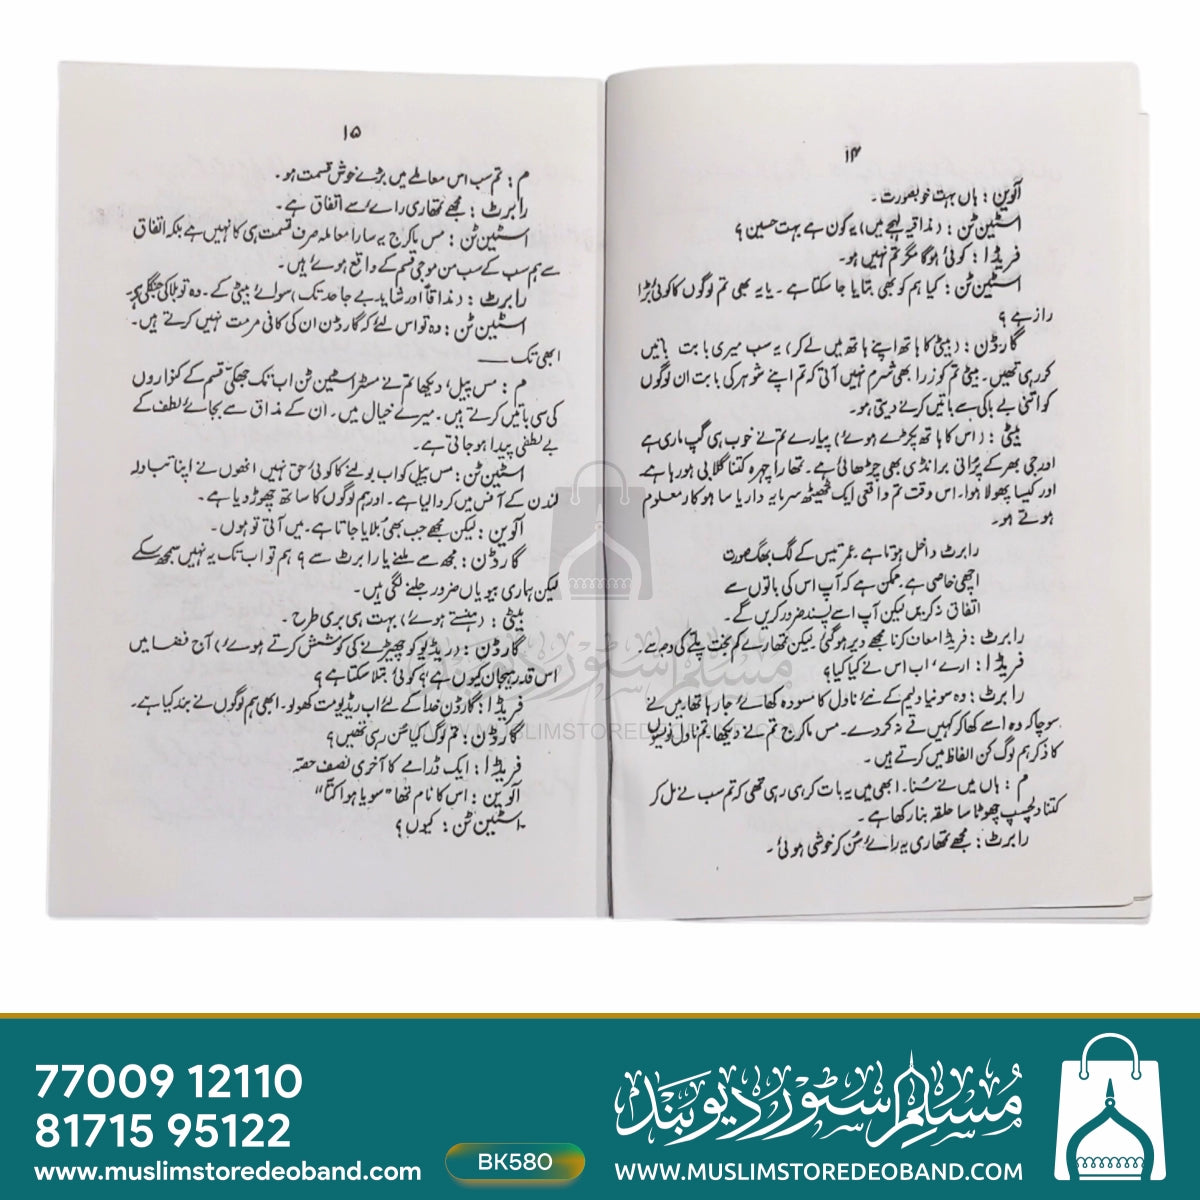 ۱۴
آلوین : ہاں بہت خوبصورت ۔
اسٹین ٹن : (مذاقیہ لہجے میں) یہ کون ہے بہت حسین ؟
فریڈا : کوئی ہوگا مگر تم نہیں ہو۔
اسٹین ٹن : کیا ہم کو بھی بتایا جا سکتا ہے ۔ یا یہ بھی تم لوگوں کا کوئی بڑا
راز ہے ؟
گارڈن : (بیٹی کا ہاتھ اپنے ہاتھ میں لے کر) یہ سب میری بابت باتیں
کر رہی تھیں ۔ بیٹی تم کو ذرا بھی شرم نہیں آتی کہ تم اپنے شوہر کی بابت ان لوگوں
کو اتنی بے باکی سے باتیں کرنے دیتی ہو۔
بیٹی : (اس کا ہاتھ پکڑتے ہوئے) پیارے تم نے خوب ہی گپ ماری ہے
اور جی بھر کے پرانی برانڈی بھی چڑھائی ہے ۔ تمہارا چہرہ کتنا گلابی ہو رہا ہے
اور کیسا پھولا ہوا۔ اس وقت تم واقعی ایک ٹھیٹھ سرمایہ دار یا ساہوکار معلوم
ہوتے ہو۔
رابرٹ داخل ہوتا ہے عمر تیس کے لگ بھگ صورت
اچھی خاصی ہے ممکن ہے کہ آپ اس کی باتوں سے
اتفاق نہ کریں لیکن آپ اسے پسند ضرور کریں گے ۔
رابرٹ : فریڈا معاف کرنا مجھے دیر ہو گئی۔ لیکن تمہارے کم بخت پلے کی وجہ سے۔
فریڈا : ارے ، اب اس نے کیا کیا ؟
رابرٹ : وہ سونیا ولیم کے نئے ناول کا مسودہ کھائے جا رہا تھا میں نے
سوچا کہ وہ اسے کھا کر کہیں قے نہ کر دے۔ مس ماکرج تم نے دیکھا تم ناول نویسوں
کا ذکر ہم لوگ کن الفاظ میں کرتے ہیں ۔
م : ہاں میں نے سنا۔ ابھی میں یہ بات کر ہی رہی تھی کہ تم سب نے مل کر
کتنا دلچسپ چھوٹا سا حلقہ بنا رکھا ہے ۔
رابرٹ : مجھے تمہاری یہ رائے سن کر خوشی ہوئی ۔
۱۵
م : تم سب اس معاملے میں بڑے خوش قسمت ہو ۔
رابرٹ : مجھے تمہاری رائے سے اتفاق ہے ۔
اسٹین ٹن : مس ماکرج یہ سارا معاملہ صرف قسمت ہی کا نہیں ہے بلکہ اتفاق
سے ہم سب کے سب من موجی قسم کے واقع ہوئے ہیں ۔
رابرٹ : (مذاقاً اور شاید بے جا حد تک) سوائے بیٹی کے ۔ وہ تو بلا کی جنگلی ہے۔
اسٹین ٹن : وہ تو اس لئے کہ گارڈن ان کی کافی مرمت نہیں کرتے ہیں ۔
ابھی تک ——
م : مس پیل، دیکھا تم نے مسٹر اسٹین ٹن اب تک جھکی قسم کے کنواروں
کی سی باتیں کرتے ہیں ۔ میرے خیال میں ۔ ان کے مذاق سے بجائے لطف کے
بے لطفی پیدا ہو جاتی ہے ۔
اسٹین ٹن : مس پیل کو اب بولنے کا کوئی حق نہیں انھوں نے اپنا تبادلہ
لندن کے آفس میں کروا لیا ہے ۔ اور ہم لوگوں کا ساتھ چھوڑ دیا ہے ۔
آلوین : لیکن مجھے جب بھی بلایا جاتا ہے ۔ میں آتی تو ہوں ۔
گارڈن : مجھ سے ملنے یا رابرٹ سے ؟ ہم تو اب تک یہ نہیں سمجھ سکے
لیکن ہماری بیویاں ضرور جلنے لگی ہیں ۔
بیٹی : (ہنستے ہوئے) بہت ہی بری طرح ۔
گارڈن : (ریڈیو کو چھیڑنے کی کوشش کرتے ہوئے) آج فضا میں
اس قدر ہیجان کیوں ہے ؟ کوئی بتلا سکتا ہے ؟
فریڈا : گارڈن خدا کے لئے اب ریڈیو مت کھولو۔ ابھی ہم لوگوں نے بند کیا ہے ۔
گارڈن : تم لوگ کیا سن رہی تھیں ؟
فریڈا : ایک ڈرامے کا آخری نصف حصہ
آلوین : اس کا نام تھا "سویا ہوا کتا"
اسٹین ٹن : کیوں ؟
مسلم سٹور دیوبند
WWW.MUSLIMSTOREDEOBAND.COM
77009 12110
81715 95122
www.muslimstoredeoband.com
BK580
مسلم سٹور دیوبند
www.MUSLIMSTOREDEOBAND.COM